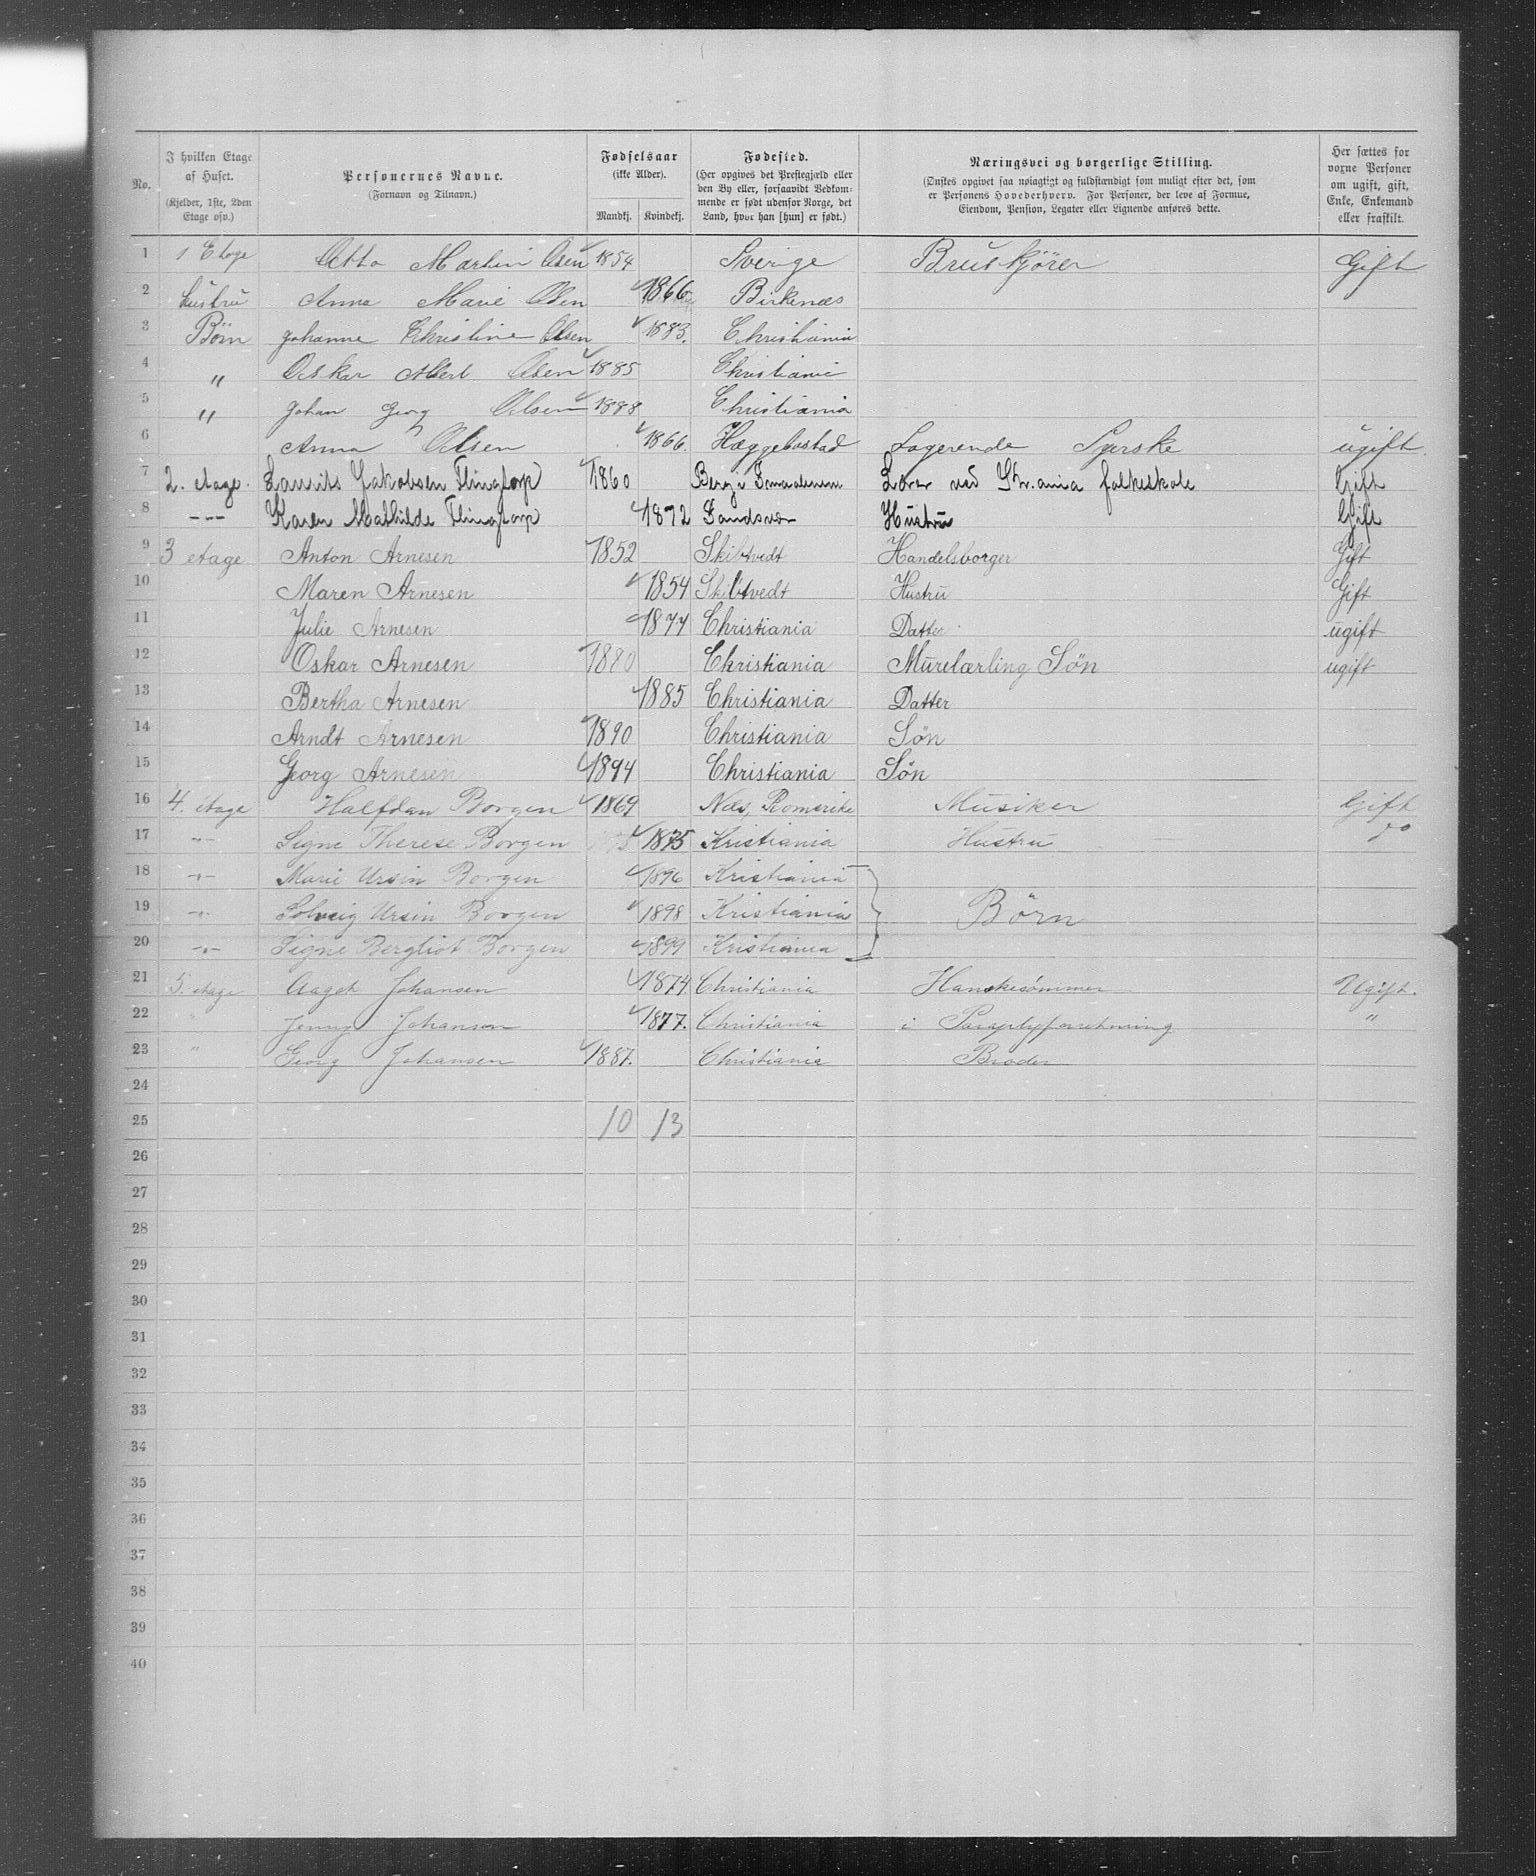 No. | I hvilken Etage af Huset. (Kjelder, 1ste, 2den Etage osv.) | Personernes Navne. (Fornavn og Tilnavn.) | Fødselsaar (ikke Alder). Mandkj. | Kvindekj. | Fødested. (Her opgives det Prestegjæld eller den By eller, forsaavidt Vedkommende er født udenfor Norge, det Land, hvor han [hun] er født.) | Næringsvei og borgerlige Stilling. (Ønskes opgivet saa nøiagtigt og fuldstændigt som muligt efter det, som er Personens Hovederhverv. For Personer, der leve af Formue, Eiendom, Pension, Legater eller Lignende anføres dette.) | Her sættes for voxne Personer om ugift, gift, Enke, Enkemand eller fraskilt.
1 | 1 Etage | Otto Martin Olsen | 1854 | | Sverige | Bruskjører | Gift
2 | Hustru | Anna Marie Olsen | | 1866 | Birkenæs
3 | Børn | Johanne Christine Olsen | | 1883. | Christiania
4 | " | Oskar Albert Olsen | 1885 | | Christiania
5 | " | Johan Georg Olsen | 1888 | | Christiania
6 | | Anna Olsen | | 1866. | Hæggebostad | Logerende Syerske | ugift.
7 | 2. etage. | Laurits Jakobsen Flingtorp | 1860 | | Berg i Smaalenene | Lærer ved Chr.ania folkeskole | Gift
8 | --- | Karen Mathilde Flingtorp | | 1872 | Sandsvær | Hustru | Gift
9 | 3 etage | Anton Arnesen | 1852 | | Skibtvedt | Handelsborger | Gift
10 | | Maren Arnesen | | 1854 | Skibtvedt | Hustru | Gift
11 | | Julie Arnesen | | 1877 | Christiania | Datter | ugift
12 | | Oskar Arnesen | 1880 | | Christiania | Murelærling Søn | ugift
13 | | Bertha Arnesen | | 1885 | Christiania | Datter
14 | | Arndt Arnesen | 1890 | | Christiania | Søn
15 | | Georg Arnesen | 1894 | | Christiania | Søn
16 | 4. etage | Halfdan Borgen | 1869 | | Næs, Romerike | Musiker | Gift
17 | -"- | Signe Therese Borgen | | 1875 | Kristiania | Hustru | do
18 | -"- | Marie Ursin Borgen | | 1896 | Kristiania
19 | -"- | Solveig Ursin Borgen | | 1898 | Kristiania | Børn
20 | -"- | Signe Bergliot Borgen | | 1899 | Kristiania
21 | 5. etage | Aagot Johansen | | 1874. | Christiania | Hanskesømmer | Ugift.
22 | " | Jenny Johansen | | 1877. | Christiania | i Paraplyforretning | "
23 | " | Georg Johansen | 1887. | | Christiania | Broder
24
25 | | | 10 | 13
26
27
28
29
30
31
32
33
34
35
36
37
38
39
40